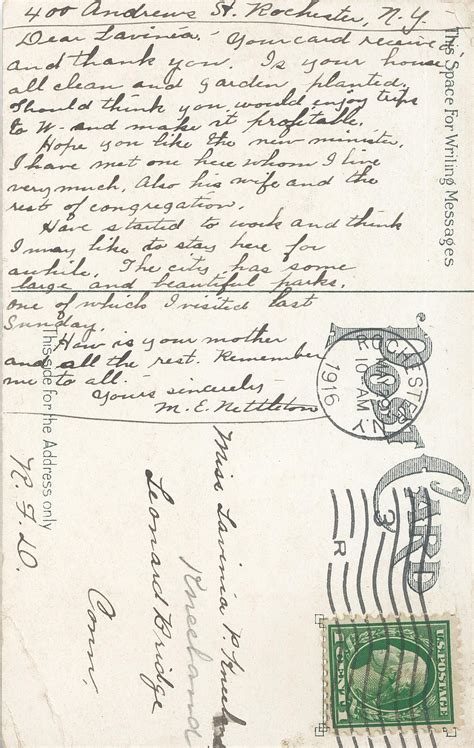 400 Andrews St. Rochester, N.Y.
Dear Lavinia. Your card received
and thank you. Is your house
all clean and garden planted.
Should think you would enjoy trips
to W- and make it profitable.
Hope you like the new minister.
I have met one here whom I like
very much. Also his wife and the
rest of congregation.
Have started to work and think
I may like to stay here for
awhile. The city has some
large and beautiful parks,
one of which I visited last
Sunday.
How is your mother
and all the rest. Remember
me to all.
Yours sincerely
M. E. Nettleton
This Space For Writing Messages
This side for the Address only
POST CARD
ROCHESTER
10-AM
1916
N.Y.
3
R
Miss Lavinia P. Kneeland
Kneeland
Leonard Bridge
Conn.
R.F.D.
U.S. POSTAGE